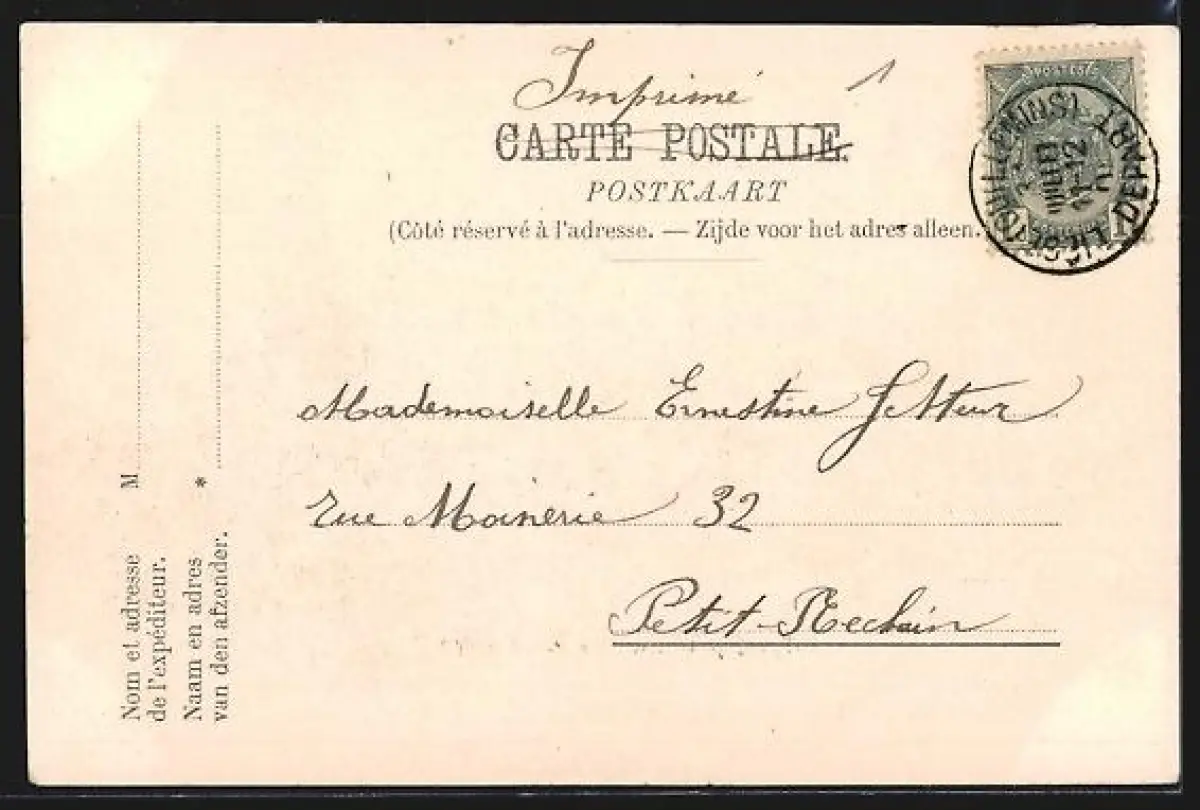 Imprimé 1
CARTE POSTALE.
POSTKAART
(Côté réservé à l'adresse. — Zijde voor het adres alleen.
POSTES
1
(GUILLEMINS)
11-12
DEPART
Mademoiselle Ernestine
Rue Mainerie 32
Petit-Rechain
M
Nom et adresse
de l'expéditeur.
*
Naam en adres
van den afzender.